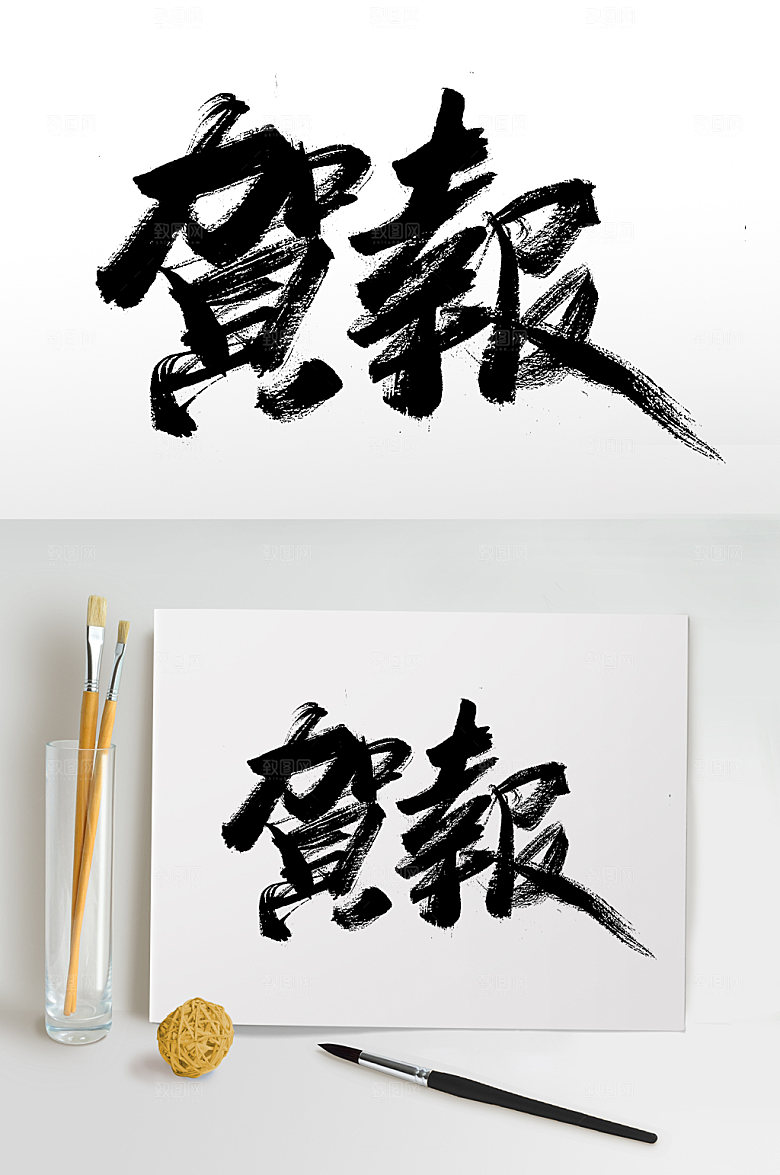 賀報
賀報